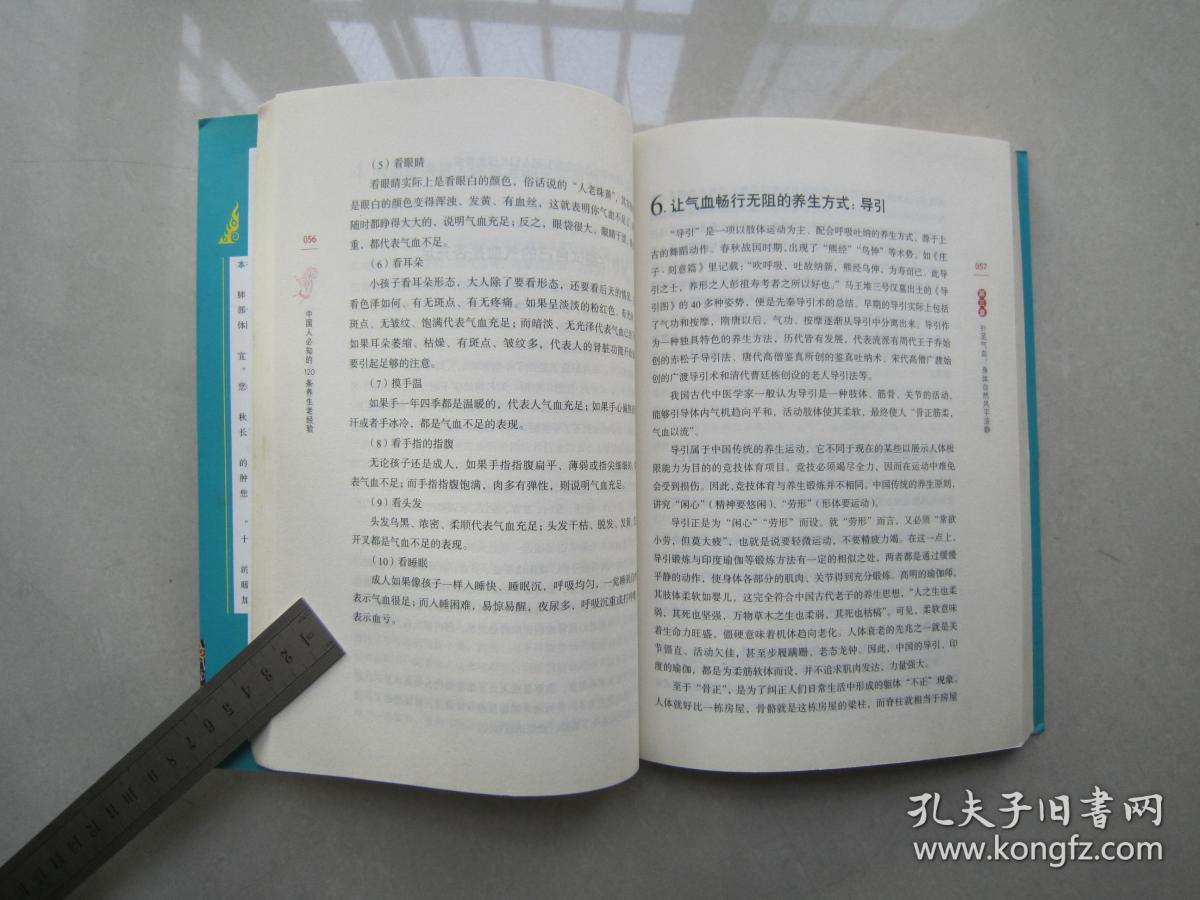 （5）看眼睛
看眼睛实际上是看眼白的颜色，俗话说的“人老珠黄”，其
是眼白的颜色变得浑浊、发黄、有血丝，这就表明你气血不足了。
随时都睁得大大的，说明气血充足；反之，眼袋很大、眼睛干涩、
重，都代表气血不足。
（6）看耳朵
小孩子看耳朵形态，大人除了要看形态，还要看后天的情况，
看色泽如何、有无斑点、有无疼痛。如果呈淡淡的粉红色、有光
斑点、无皱纹、饱满代表气血充足；而暗淡、无光泽代表气血已
如果耳朵萎缩、枯燥、有斑点、皱纹多，代表人的肾脏功能开始
要引起足够的注意。
（7）摸手温
如果手一年四季都是温暖的，代表人气血充足；如果手心
汗或者手冰冷，都是气血不足的表现。
（8）看手指的指腹
无论孩子还是成人，如果手指指腹扁平、薄弱或指尖细细的，
表气血不足；而手指指腹饱满，肉多有弹性，则说明气血充足。
（9）看头发
头发乌黑、浓密、柔顺代表气血充足；头发干枯、脱发、发黄、
开叉都是气血不足的表现。
（10）看睡眠
成人如果像孩子一样入睡快、睡眠沉，呼吸均匀，一觉睡到
表示气血很足；而入睡困难，易惊易醒，夜尿多，呼吸沉重或打
表示血亏。
056
中国人必知的120条养生老经验
6.让气血畅行无阻的养生方式：导引
“导引”是一项以肢体运动为主、配合呼吸吐纳的养生方式，源于上
古的舞蹈动作。春秋战国时期，出现了“熊经”“鸟伸”等术势。如《庄
子·刻意篇》里记载：“吹呼吸，吐故纳新，熊经鸟伸，为寿而已。此导
引之士，养形之人彭祖寿考者之所以好也。”马王堆三号汉墓出土的《导
引图》的40多种姿势，便是先秦导引术的总结。早期的导引实际上包括
了气功和按摩，隋唐以后，气功、按摩逐渐从导引中分离出来。导引作
为一种独具特色的养生方法，历代皆有发展，代表流派有周代王子乔始
创的赤松子导引法、唐代高僧鉴真所创的鉴真吐纳术、宋代高僧广渡始
创的广渡导引术和清代曹廷栋创设的老人导引法等。
我国古代中医学家一般认为导引是一种肢体、筋骨、关节的活动，
能够引导体内气机趋向平和，活动肢体使其柔软，最终使人“骨正筋柔，
气血以流”。
导引属于中国传统的养生运动，它不同于现在的某些以展示人体极
限能力为目的的竞技体育项目。竞技必须竭尽全力，因而在运动中难免
会受到损伤。因此，竞技体育与养生锻炼并不相同。中国传统的养生原则，
讲究“闲心”（精神要悠闲）、“劳形”（形体要运动）。
导引正是为“闲心”“劳形”而设。就“劳形”而言，又必须“常欲
小劳，但莫大疲”，也就是说要轻微运动，不要精疲力竭。在这一点上，
导引锻炼与印度瑜伽等锻炼方法有一定的相似之处，两者都是通过缓慢
平静的动作，使身体各部分的肌肉、关节得到充分锻炼。高明的瑜伽师，
其肢体柔软如婴儿，这完全符合中国古代老子的养生思想，“人之生也柔
弱，其死也坚强，万物草木之生也柔弱，其死也枯槁”。可见，柔软意味
着生命力旺盛，僵硬意味着机体趋向老化。人体衰老的先兆之一就是关
节僵直、活动欠佳，甚至步履蹒跚、老态龙钟。因此，中国的导引、印
度的瑜伽，都是为柔筋软体而设，并不追求肌肉发达，力量强大。
至于“骨正”，是为了纠正人们日常生活中形成的躯体“不正”现象。
人体就好比一栋房屋，骨骼就是这栋房屋的梁柱，而脊柱就相当于房屋
057
补足气血，身体自然风平浪静
孔夫子旧书网
www.kongfz.com